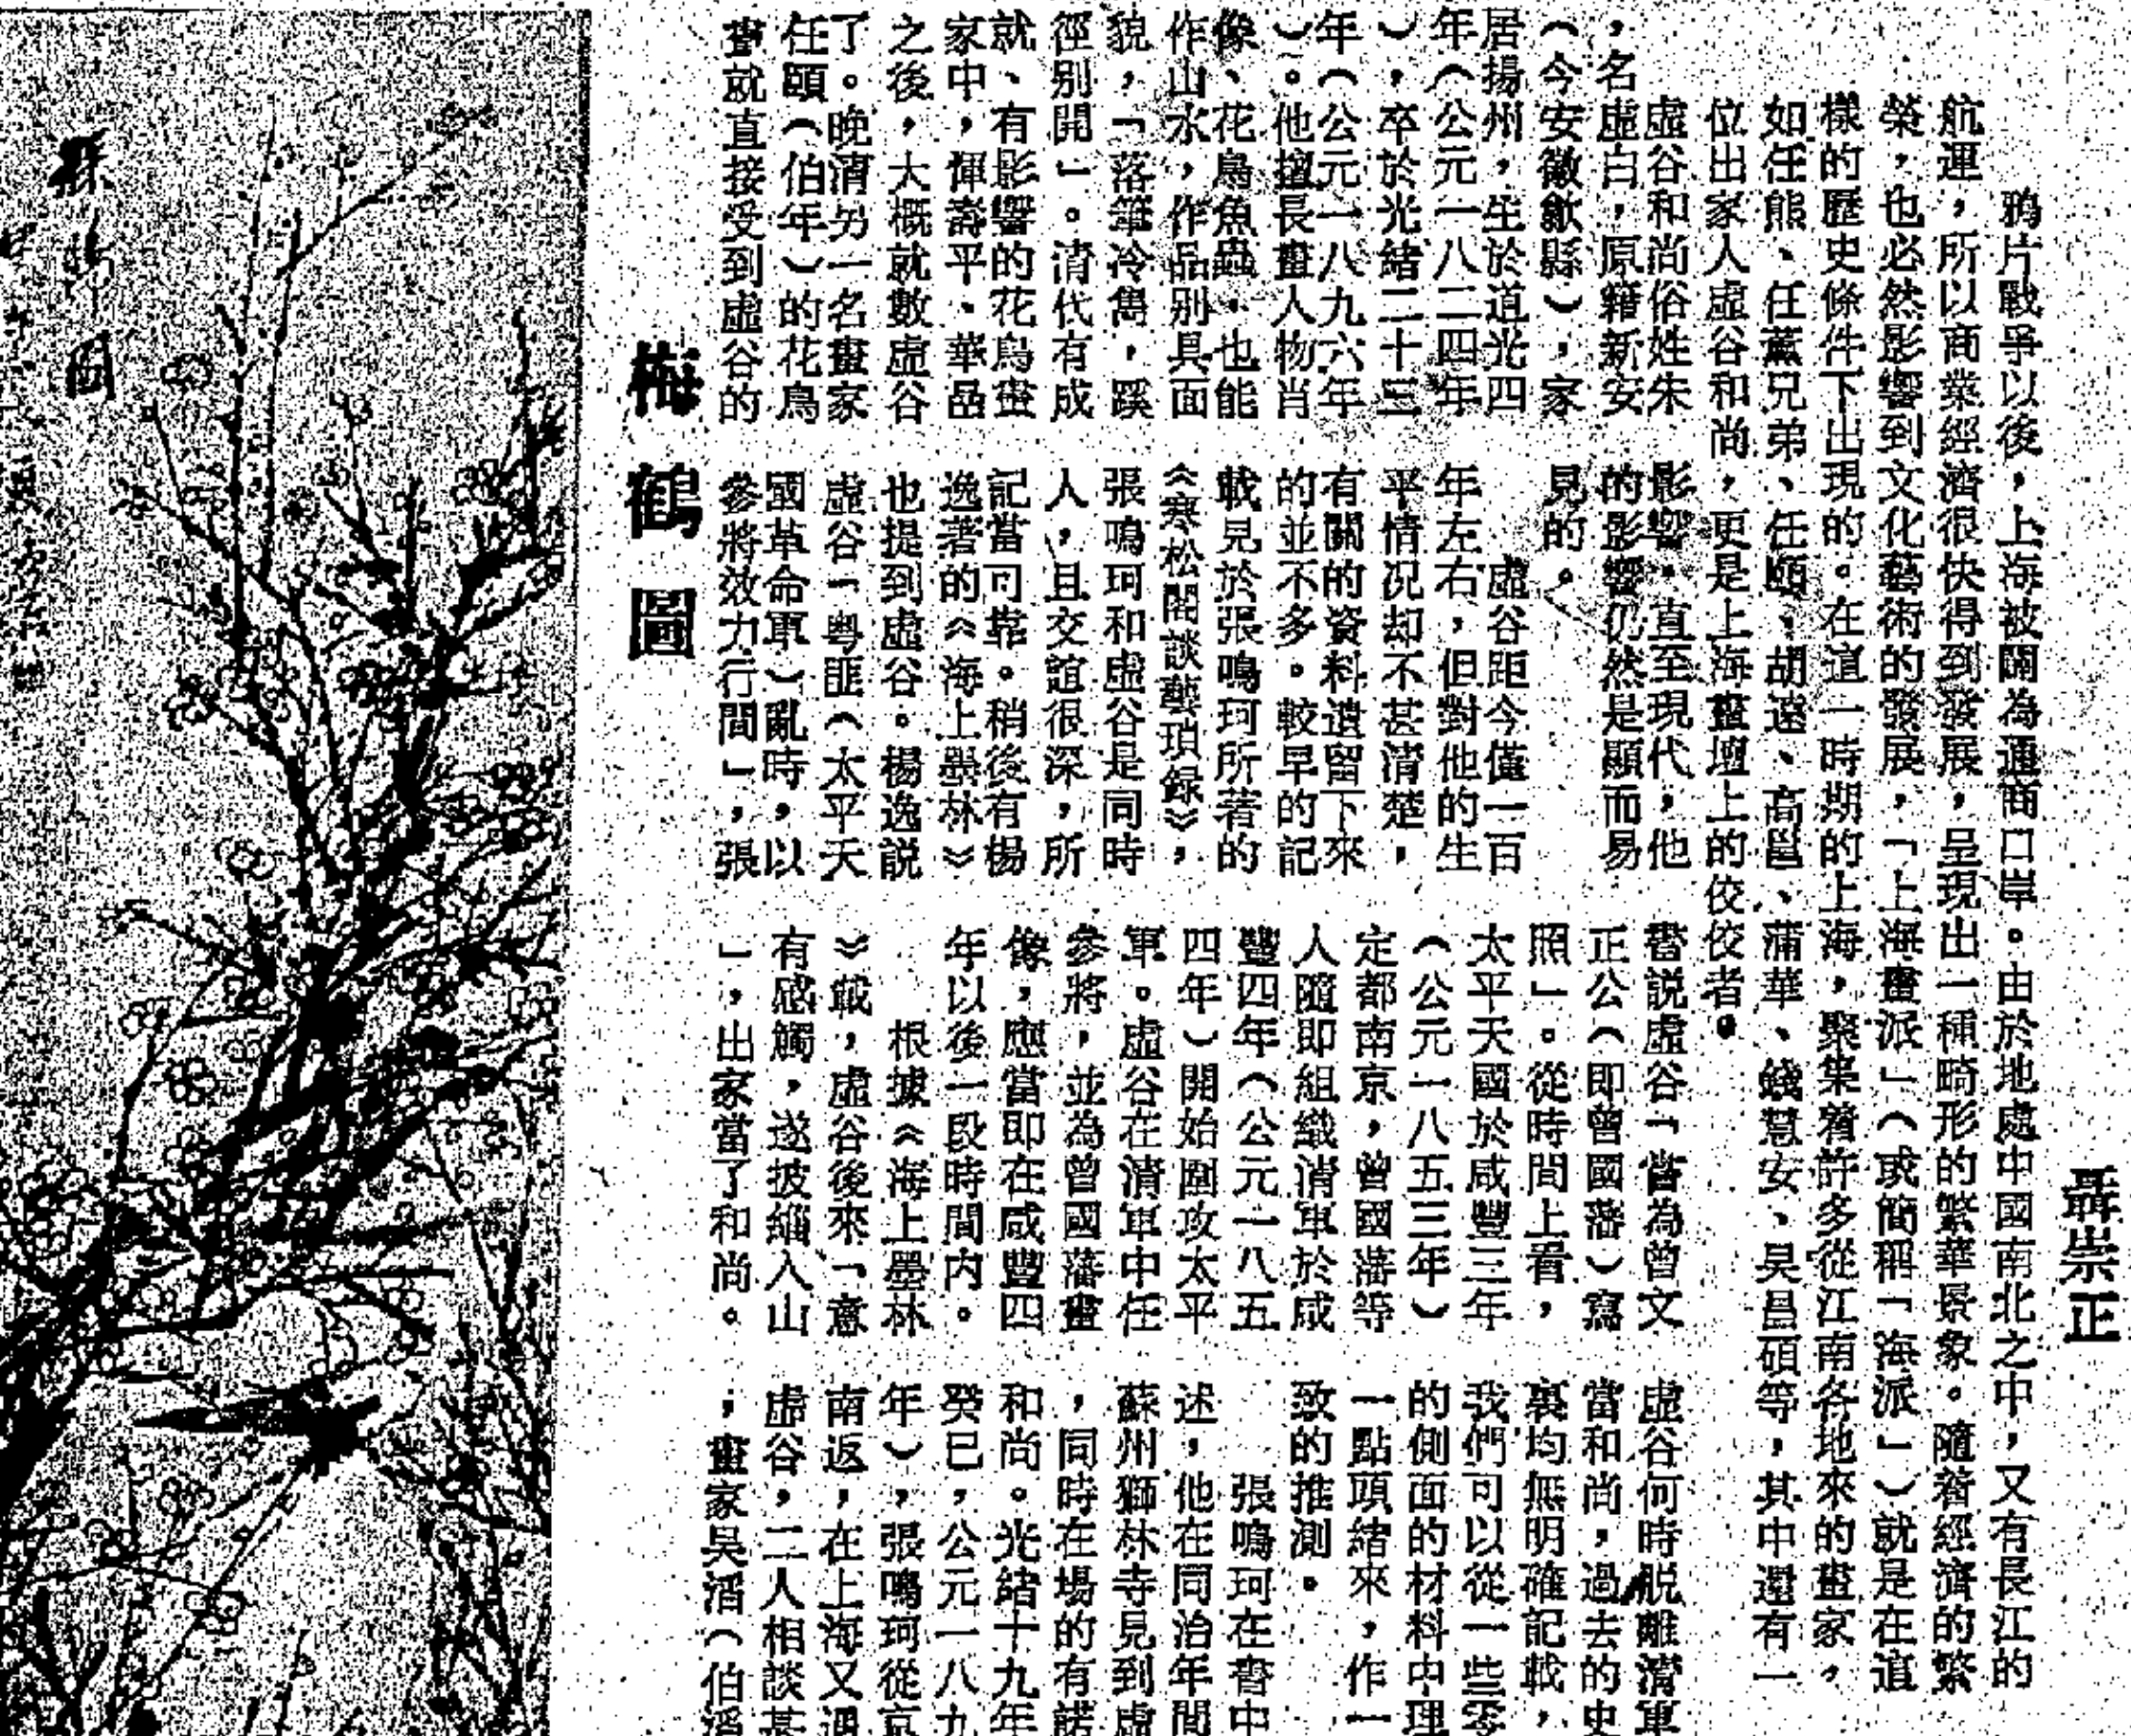 聶崇正
鴉片戰爭以後，上海被闢為通商口岸。由於地處中國南北之中，又有長江的
航運，所以商業經濟很快得到發展，呈現出一種畸形的繁華景象。隨着經濟的繁
榮，也必然影響到文化藝術的發展，「上海畫派」（或簡稱「海派」）就是在這
樣的歷史條件下出現的。在這一時期的上海，聚集着許多從江南各地來的畫家，
如任熊、任薰兄弟、任頤、胡遠、高邕、蒲華、錢慧安、吳昌碩等，其中還有一
位出家人虛谷和尚，更是上海畫壇上的佼佼者。
虛谷和尚俗姓朱
，名虛白，原籍新安
（今安徽歙縣），家
居揚州，生於道光四
年（公元一八二四年
），卒於光緒二十三
年（公元一八九六年
）。他擅長畫人物肖
像、花鳥魚蟲，也能
作山水，作品別具面
貌，「落筆冷雋，蹊
徑別開」。清代有成
就、有影響的花鳥畫
家中，惲壽平、華嵒
之後，大概就數虛谷
了。晚清另一名畫家
任頤（伯年）的花鳥
畫就直接受到虛谷的
影響，直至現代，他
的影響仍然是顯而易
見的。
虛谷距今僅一百
年左右，但對他的生
平情况却不甚清楚，
有關的資料遺留下來
的並不多。較早的記
載見於張鳴珂所著的
《寒松閣談藝瑣録》，
張鳴珂和虛谷是同時
人，且交誼很深，所
記當可靠。稍後有楊
逸著的《海上墨林》
也提到虛谷。楊逸説
虛谷「粤匪（太平天
國革命軍）亂時，以
參將效力行間」，張
書説虛谷「嘗為曾文
正公（即曾國藩）寫
照」。從時間上看，
太平天國於咸豐三年
（公元一八五三年）
定都南京，曾國藩等
人隨即組織清軍於咸
豐四年（公元一八五
四年）開始圍攻太平
軍。虛谷在清軍中任
參將，並為曾國藩畫
像，應當即在咸豐四
年以後一段時間内。
根據《海上墨林
》載，虛谷後來「意
有感觸，遂披緇入山
」，出家當了和尚。
虛谷何時脱離清軍
當和尚，過去的史
裏均無明確記載，
我們可以從一些零
的側面的材料中理
一點頭緒來，作一
致的推測。
張鳴珂在書中
述，他在同治年間
蘇州獅林寺見到虛
，同時在場的有諾
和尚。光緒十九年
癸巳，公元一八九
年），張鳴珂從京
南返，在上海又遇
虛谷，二人相談甚
；畫家吳滔（伯滔
梅鶴圖